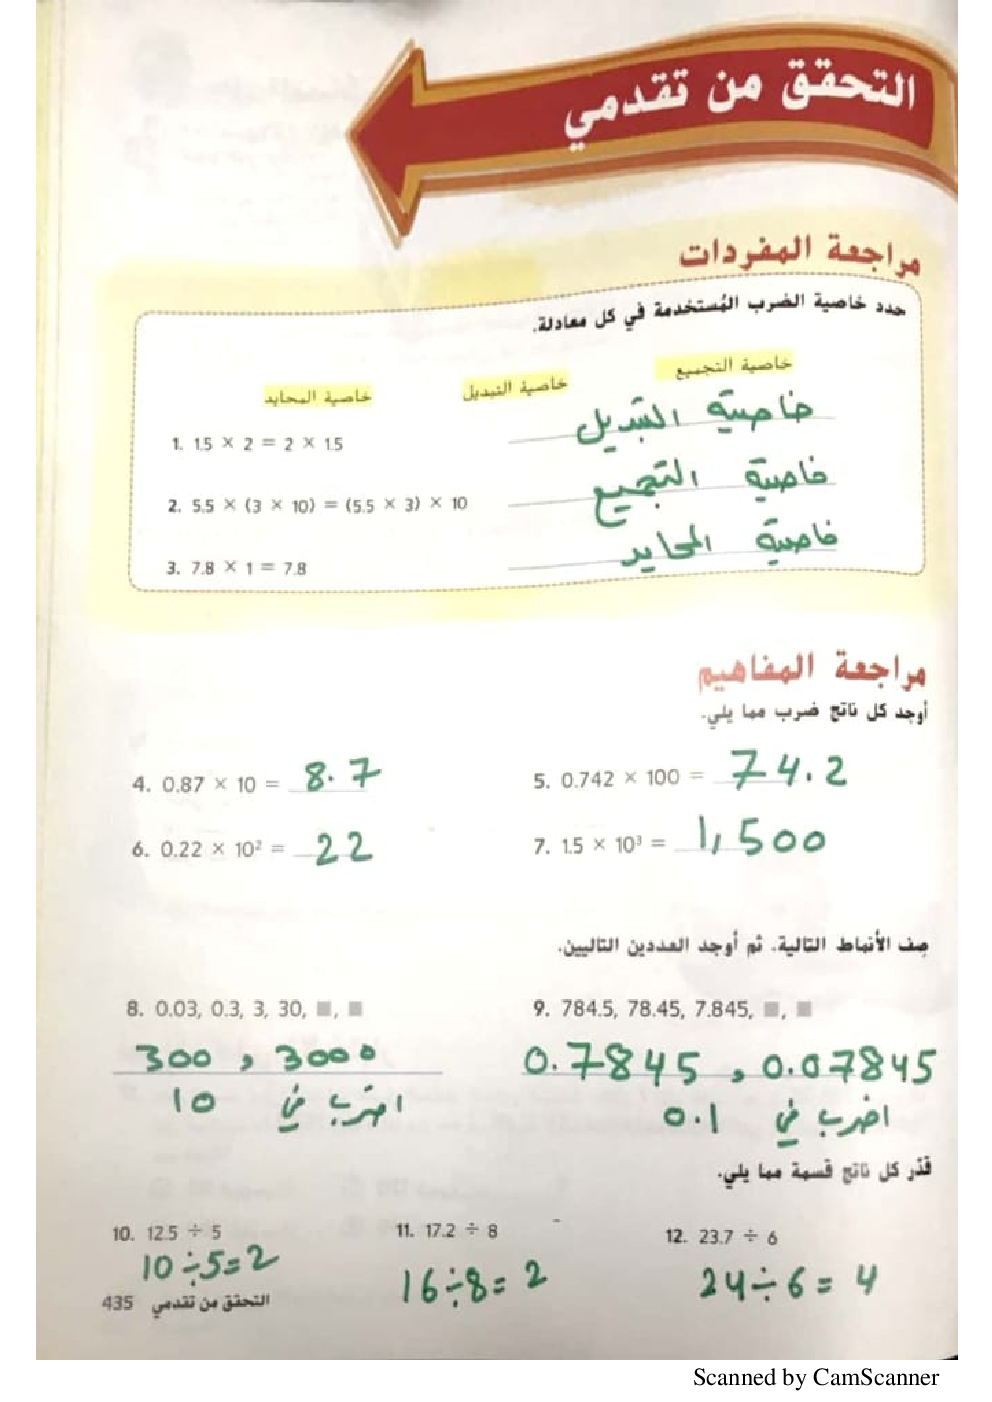 التحقق من تقدمي
مراجعة المفردات
حدد خاصية الضرب المُستخدمة في كل معادلة.
خاصية التجميع خاصية التبديل خاصية المحايد
1. 1.5 × 2 = 2 × 1.5 خاصية التبديل
2. 5.5 × (3 × 10) = (5.5 × 3) × 10 خاصية التجميع
3. 7.8 × 1 = 7.8 خاصية المحايد
مراجعة المفاهيم
أوجد كل ناتج ضرب مما يلي.
4. 0.87 × 10 = 8.7 5. 0.742 × 100 = 74.2
6. 0.22 × 10² = 22 7. 1.5 × 10³ = 1,500
صف الأنماط التالية. ثم أوجد العددين التاليين.
8. 0.03, 0.3, 3, 30, ■, ■ 9. 784.5, 78.45, 7.845, ■, ■
300 , 3000 0.7845 , 0.07845
اضرب في 10 اضرب في 0.1
قدّر كل ناتج قسمة مما يلي.
10. 12.5 ÷ 5 11. 17.2 ÷ 8 12. 23.7 ÷ 6
10÷5=2 16÷8=2 24÷6=4
التحقق من تقدمي 435
Scanned by CamScanner